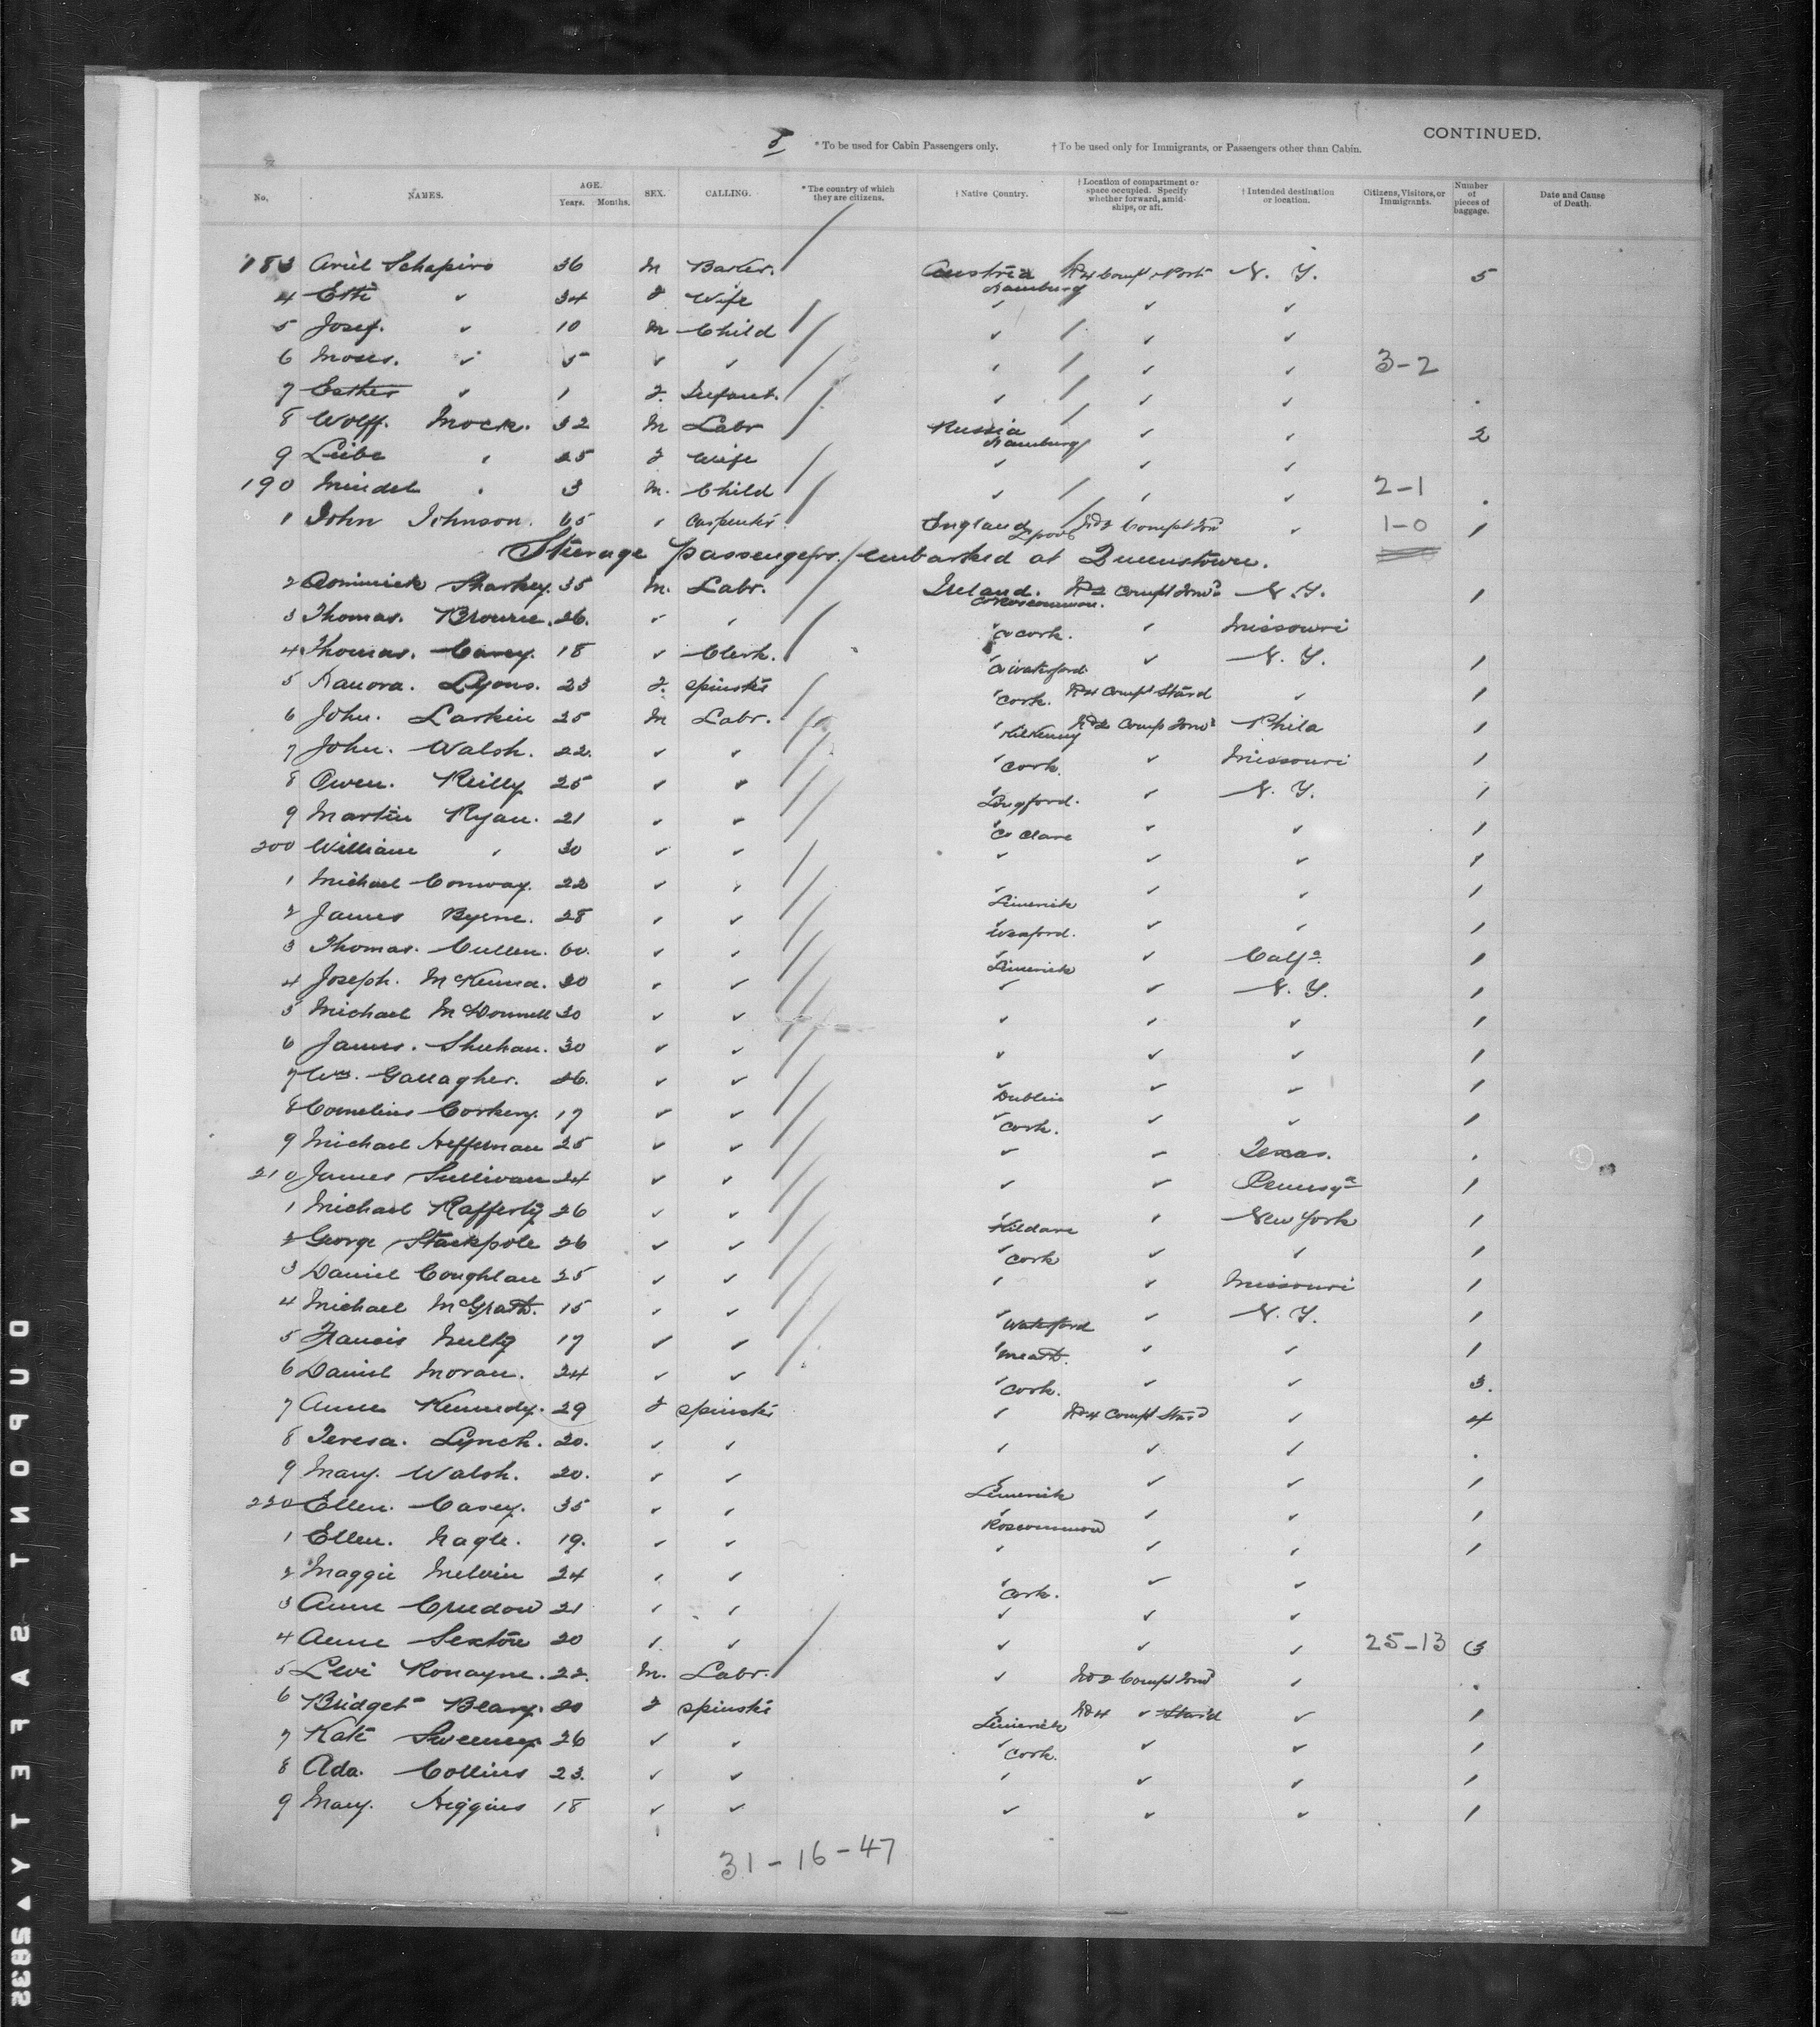 CONTINUED.
* To be used for Cabin Passengers only. † To be used only for Immigrants, or Passengers other than Cabin.
No. NAMES. AGE. Years. Months. SEX. CALLING. * The country of which they are citizens. † Native Country. † Location of compartment or space occupied. Specify whether forward, amidships, or aft. † Intended destination or location. Citizens, Visitors, or Immigrants. Number of pieces of baggage. Date and Cause of Death.
183 Ariel Schapiro 36 M Austria Hamburg No 4 Compt Port N. Y. 5
4 Esti ✓ 34 F Wife ✓ ✓ ✓
5 Josef. ✓ 10 M Child ✓ ✓ ✓
6 Moses. ✓ 5 ✓ ✓ ✓ ✓ ✓ 3-2
7 Esther ✓ 1 F. Infant. ✓ ✓ ✓
8 Wolff. Mock. 32 M Labr Russia Hamburg ✓ ✓ 2
9 Leibe ✓ 25 F Wife ✓ ✓ ✓
190 Mindel ✓ 3 M. Child ✓ ✓ ✓ 2-1
1 John Johnson. 65 ✓ Carpenter England L'pool No 2 Compt Forwd ✓ 1-0 1
Steerage passengers embarked at Queenstown.
2 Dominick Sharkey. 35 M. Labr. Ireland. Co Roscommon. No 2 Compt Forwd N. Y. 1
3 Thomas. Browne. 26. ✓ ✓ ✓ Co Cork. ✓ Missouri
4 Thomas. Carey. 18 ✓ Clerk. ✓ Co Waterford ✓ N. Y. 1
5 Hanora. Lyons. 23 F. Spinster ✓ Cork. No 4 Compt Starbd ✓ 1
6 John. Larkin 25 M Labr. ✓ Kilkenny No 2 Comp Forwd Phila 1
7 John. Walsh. 22. ✓ ✓ ✓ Cork. ✓ Missouri 1
8 Owen. Reilly 25 ✓ ✓ ✓ Longford. ✓ N. Y. 1
9 Martin Ryan. 21 ✓ ✓ ✓ Co Clare ✓ ✓ 1
200 William ✓ 30 ✓ ✓ ✓ ✓ ✓ 1
1 Michael Conway. 22 ✓ ✓ ✓ Limerick ✓ ✓ 1
2 James Byrne. 28 ✓ ✓ ✓ Wexford. ✓ ✓ 1
3 Thomas. Cullen. 60. ✓ ✓ ✓ Limerick ✓ Calfa 1
4 Joseph. McKenna. 30 ✓ ✓ ✓ ✓ N. Y. 1
5 Michael McDonnell 30 ✓ ✓ ✓ ✓ ✓ 1
6 James. Sheehan. 30 ✓ ✓ ✓ ✓ ✓ 1
7 Wm. Gallagher. 26. ✓ ✓ ✓ Dublin ✓ ✓ 1
8 Cornelius Corkery. 17 ✓ ✓ ✓ Cork. ✓ ✓ 1
9 Michael Heffernan 25 ✓ ✓ ✓ ✓ Texas.
210 James Sullivan 24 ✓ ✓ ✓ ✓ Pennsya 1
1 Michael Rafferty 26 ✓ ✓ ✓ Kildare ✓ New York 1
2 George Stackpole 26 ✓ ✓ ✓ Cork ✓ ✓ 1
3 Daniel Coughlan 25 ✓ ✓ ✓ ✓ Missouri 1
4 Michael McGrath. 15 ✓ ✓ ✓ Waterford ✓ N. Y. 1
5 Francis Nulty 17 ✓ ✓ ✓ Meath. ✓ ✓ 1
6 Daniel Moran. 24 ✓ ✓ ✓ Cork. ✓ ✓ 3.
7 Anne Kennedy. 29 F Spinster ✓ No 4 Compt Starbd ✓ 4
8 Teresa. Lynch. 20. ✓ ✓ ✓ ✓ ✓
9 Mary. Walsh. 20. ✓ ✓ ✓ Limerick ✓ ✓ 1
220 Ellen. Casey. 35 ✓ ✓ ✓ Roscommon ✓ ✓ 1
1 Ellen. Nagle. 19. ✓ ✓ ✓ ✓ ✓ 1
2 Maggie Melvin 24 ✓ ✓ ✓ Cork. ✓ ✓
3 Anne Creedon 21 ✓ ✓ ✓ ✓ ✓
4 Anne Sexton 20 ✓ ✓ ✓ ✓ ✓ 25-13 3
5 Levi Ronayne. 22. M. Labr. ✓ No 2 Compt Forwd ✓
6 Bridget Bleary. 20 F Spinster ✓ Limerick No 4 ✓ Starbd ✓ 1
7 Kate Sweeney 26 ✓ ✓ ✓ Cork. ✓ ✓ 1
8 Ada. Collins 23. ✓ ✓ ✓ ✓ ✓ 1
9 Mary. Higgins 18 ✓ ✓ ✓ ✓ ✓ 1
31-16-47
DUPONT SAFETY S832